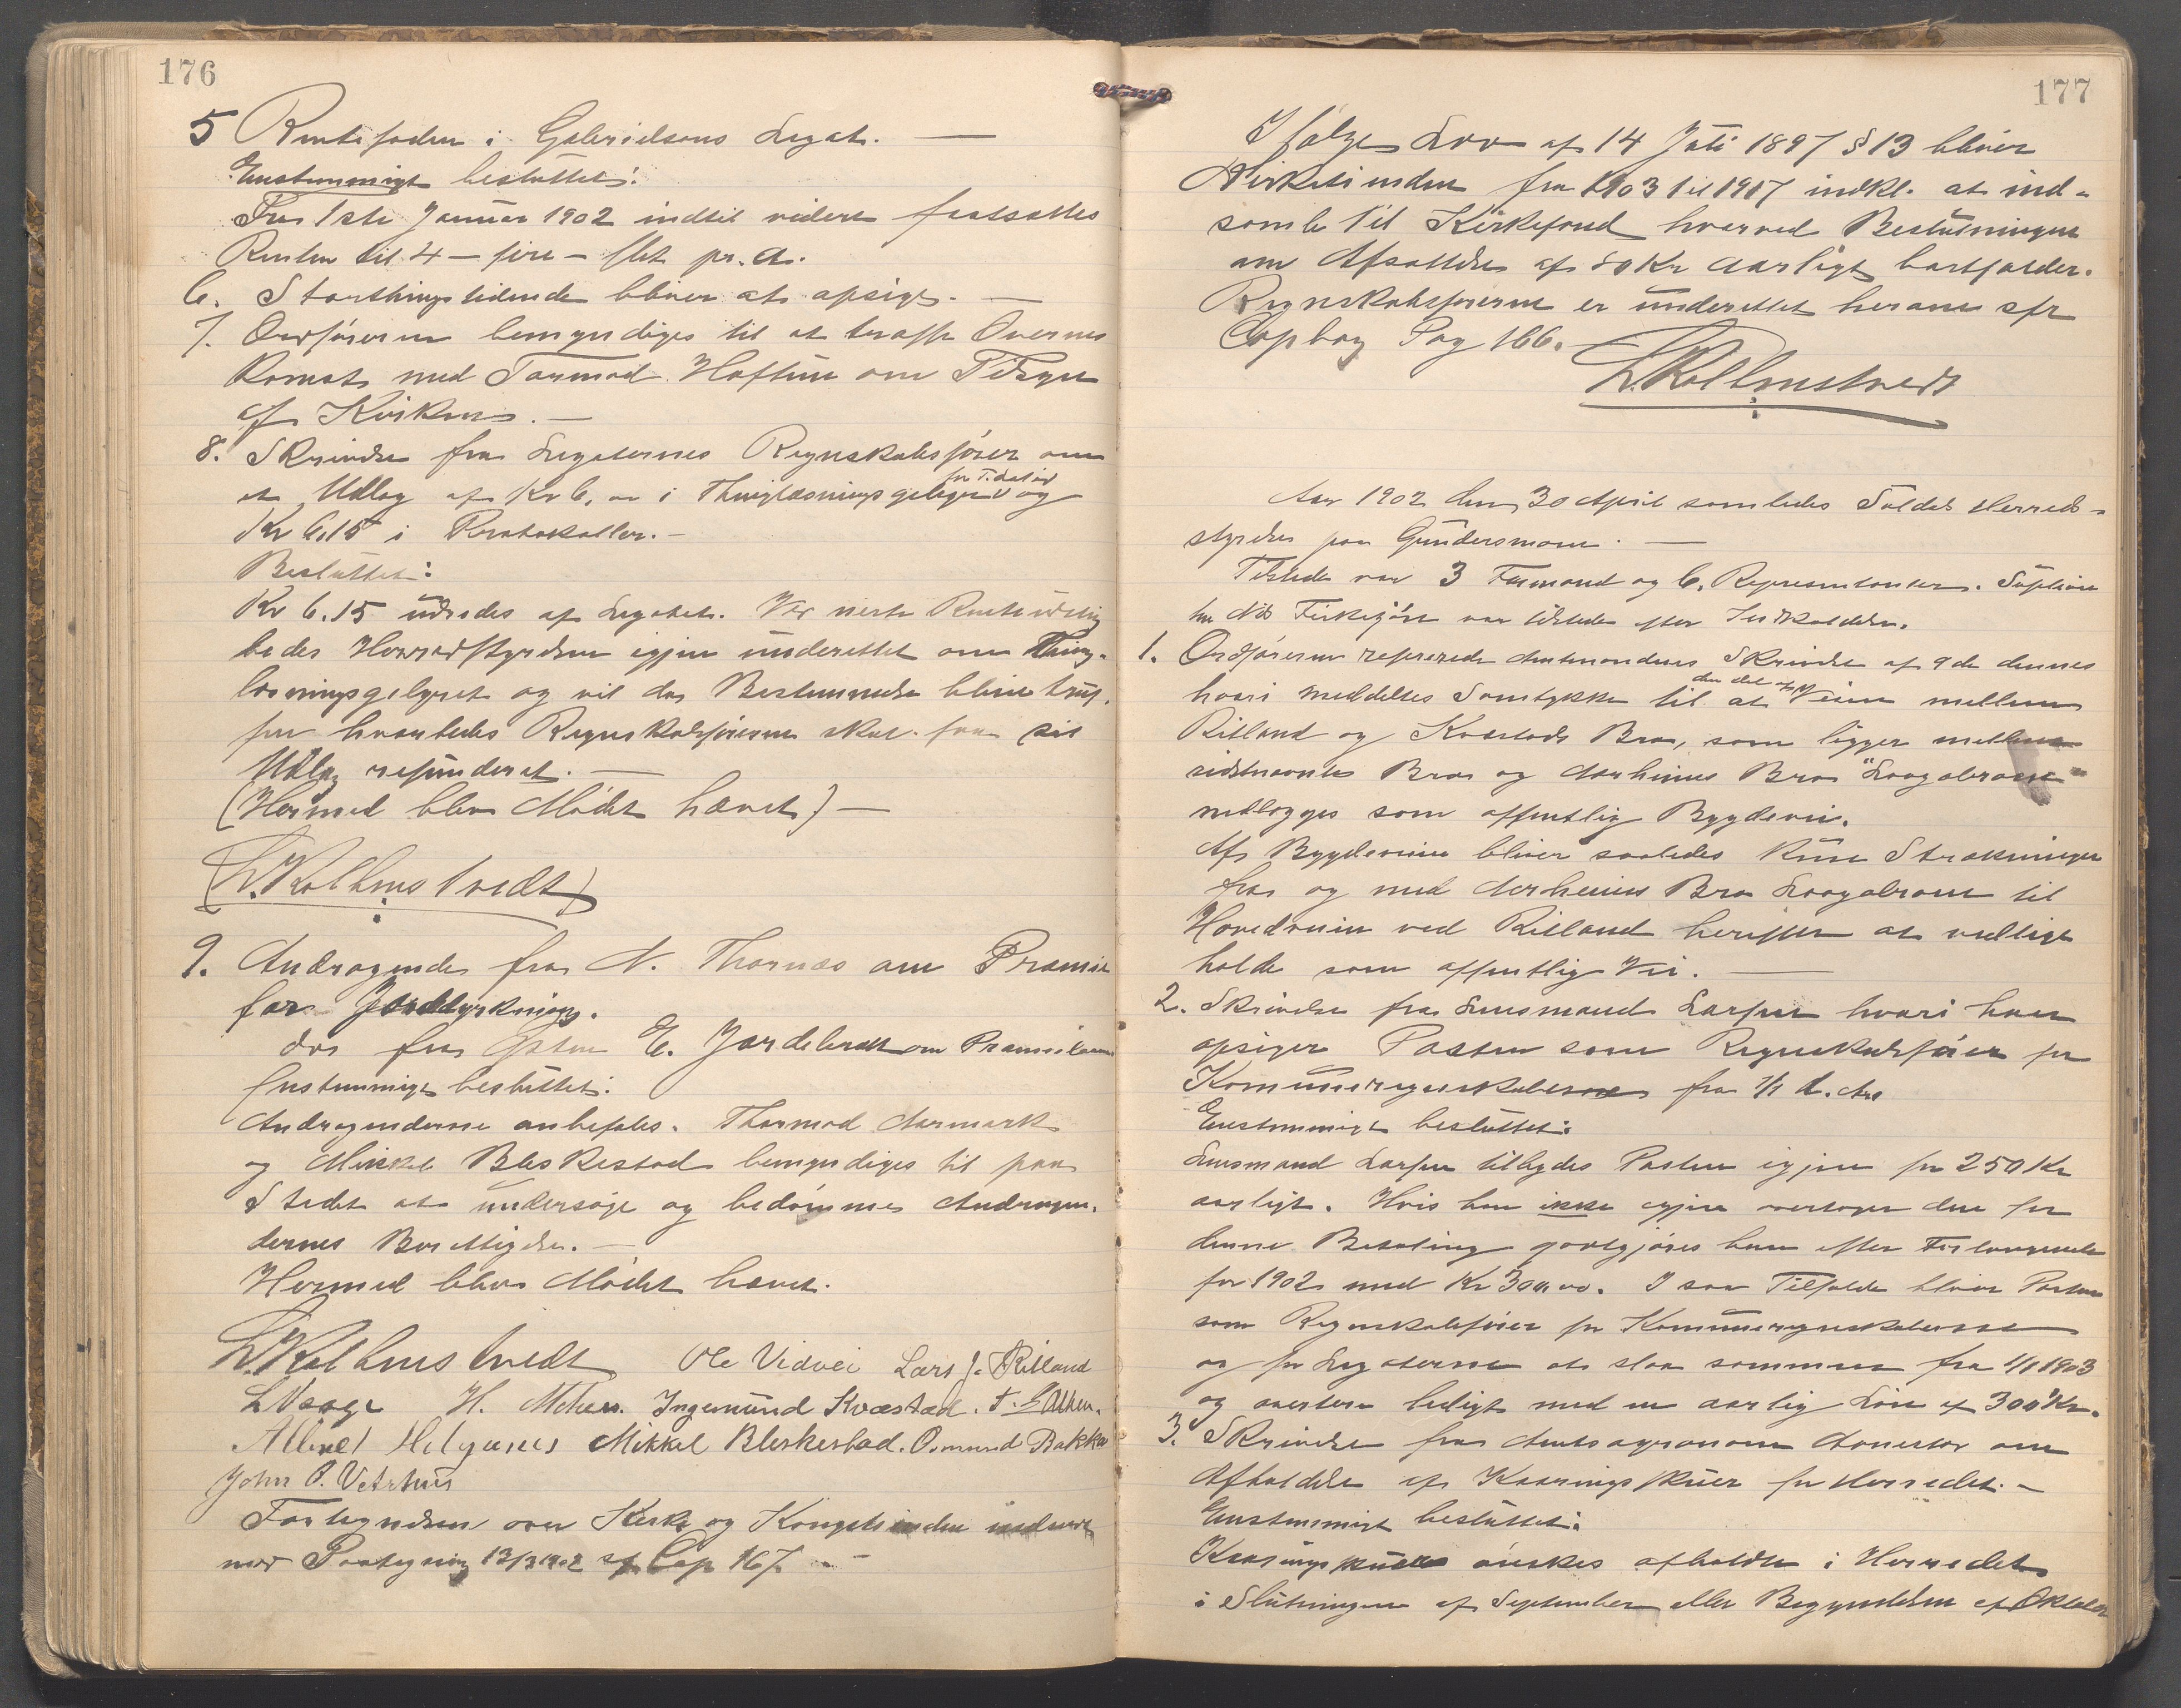 176
5 Rentefoden i Gabrielsens Legat. —
Enstemmigt besluttet:
Fra 1ste Januar 1902 indtil videre fastsættes
Renten til 4 - fire - pct pr. a.
6. Storthingstidende bliver at opsige. —
7. Ordføreren bemyndiges til at træffe Overens
komst med Tormod Høftun om Tilsyn
af Kirken. —
8. Skrivelse fra Legaternes Regnskabsfører om
et Udlæg af Kr 6, i Thinglæsningsgebyrer og
Kr 6,15 i Protokoller. —
Besluttet:
Kr 6.15 udredes af Legatet. Ved neste
bedes Herredstyrelsen igjen underettet om Thing-
læsningsgebyret og vil da Bestemmelse blive truf.
fen hvorledes Regnskabsføreren skal faa sit
Udlæg refunderet. —
(Hermed blev Mødet hævet) —
L. Kolbenstvedt
9. Andragende fra N. Thornæs om Præmie
for Jorddyrkning.
do fra Østen E. Jordebrekk om Præmie
Enstemmigt besluttet:
Andragenderne anbefales. Thormod Aarmark
og Mikkel Bleskestad bemyndiges til paa
Stedet at undersøge og bedømme Andragen-
dernes Berettigelse. —
Hermed blev Mødet hævet.
L. Kolbenstvedt Ole Vidvei Lars J. Ritland
L Vaage H. Mehus. Ingemund Kvæstad.
Mikkel Bleskestad. Osmund Bakka
John O. Vetrhus
Fortegnelsen over Kirke og Kongetienden
med Paategning 13/3 1902 cfr Cop 167. —
177
Ifølge Lov af 14 Juli 1897 § 13 bliver
Kirketienden fra 1903 til 1917 indkl. at ind-
samle til Kirkefond hvorved Beslutningen
om Afsættelse af 80 Kr aarligt bortfalder.
Regnskabsføreren er underettet herom cfr
Copbog Pag 166.
L. Kolbenstvedt
Aar 1902 den 30 April samledes Suldals Herreds-
styrelse paa Gundersmoen. —
Tilstede var 3 Formænd og 6. Representanter. Suplean
ten Nils Fiskekjøn var tilstede efter Indkaldelse.
1. Ordføreren refererede Amtmandens Skrivelse af 9de dennes
hvori meddeltes Samtykke til at den del af Veien mellem
Ritland og Kvæstads Bro, som ligger mellem
sidstnævnte Bro og Aarhuus Bro "Laagabroen"
nedlægges som offentlig Bygdevei.
Af Bygdeveien bliver saaledes kun Strækningen
fra og med Aarhuus Bro Laagabroen til
Hovedveien ved Ritland herefter at vedlige
holde som offentlig Vei. —
2. Skrivelse fra Lensmand Larsen hvori han
opsiger Posten som Regnskabsfører for
Kommuneregnskaberne fra 1/1 d. Aar
Enstemmigt besluttet:
Lensmand Larsen tilbydes Posten igjen for 250 Kr
aarligt. Hvis han ikke igjen overtager den for
denne Betaling godtgjøres ham efter Forlangende
for 1902 med Kr 300,00. I saa Tilfælde bliver Posten
som Regnskabsfører for Kommuneregnskaberne
og for Legaterne at slaa sammen fra 1/1 1903
og averteres ledigt med en aarlig Løn af 300 Kr.
3. Skrivelse fra Amtsagronom Aanestad om
Afholdelse af Kaaringsskuer for Herredet. —
Enstemmigt besluttet:
Kaaringsskuer ønskes afholdte i Herredet
i Slutningen af September eller Begyndelsen af Oktober